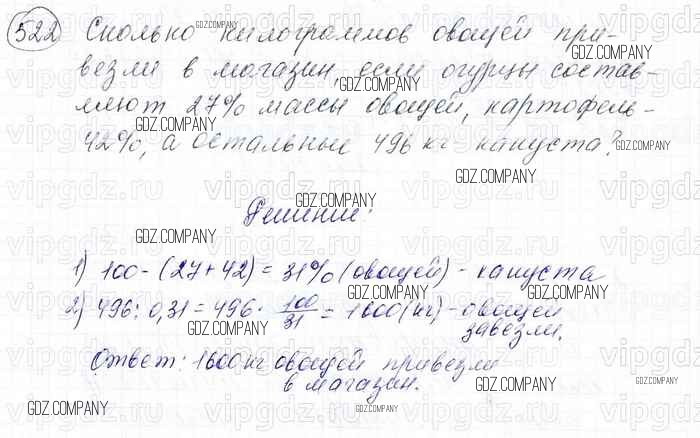 522 Сколько килограммов овощей при-
везли в магазин, если огурцы состав-
ляют 27% массы овощей, картофель-
42%, а остальные 496 кг капуста?
Решение:
1) 100-(27+42)=31% (овощей)- капуста
2) 496:0,31=496·100/31=1600(кг)-овощей
завезли.
Ответ: 1600 кг овощей привезли
в магазин.